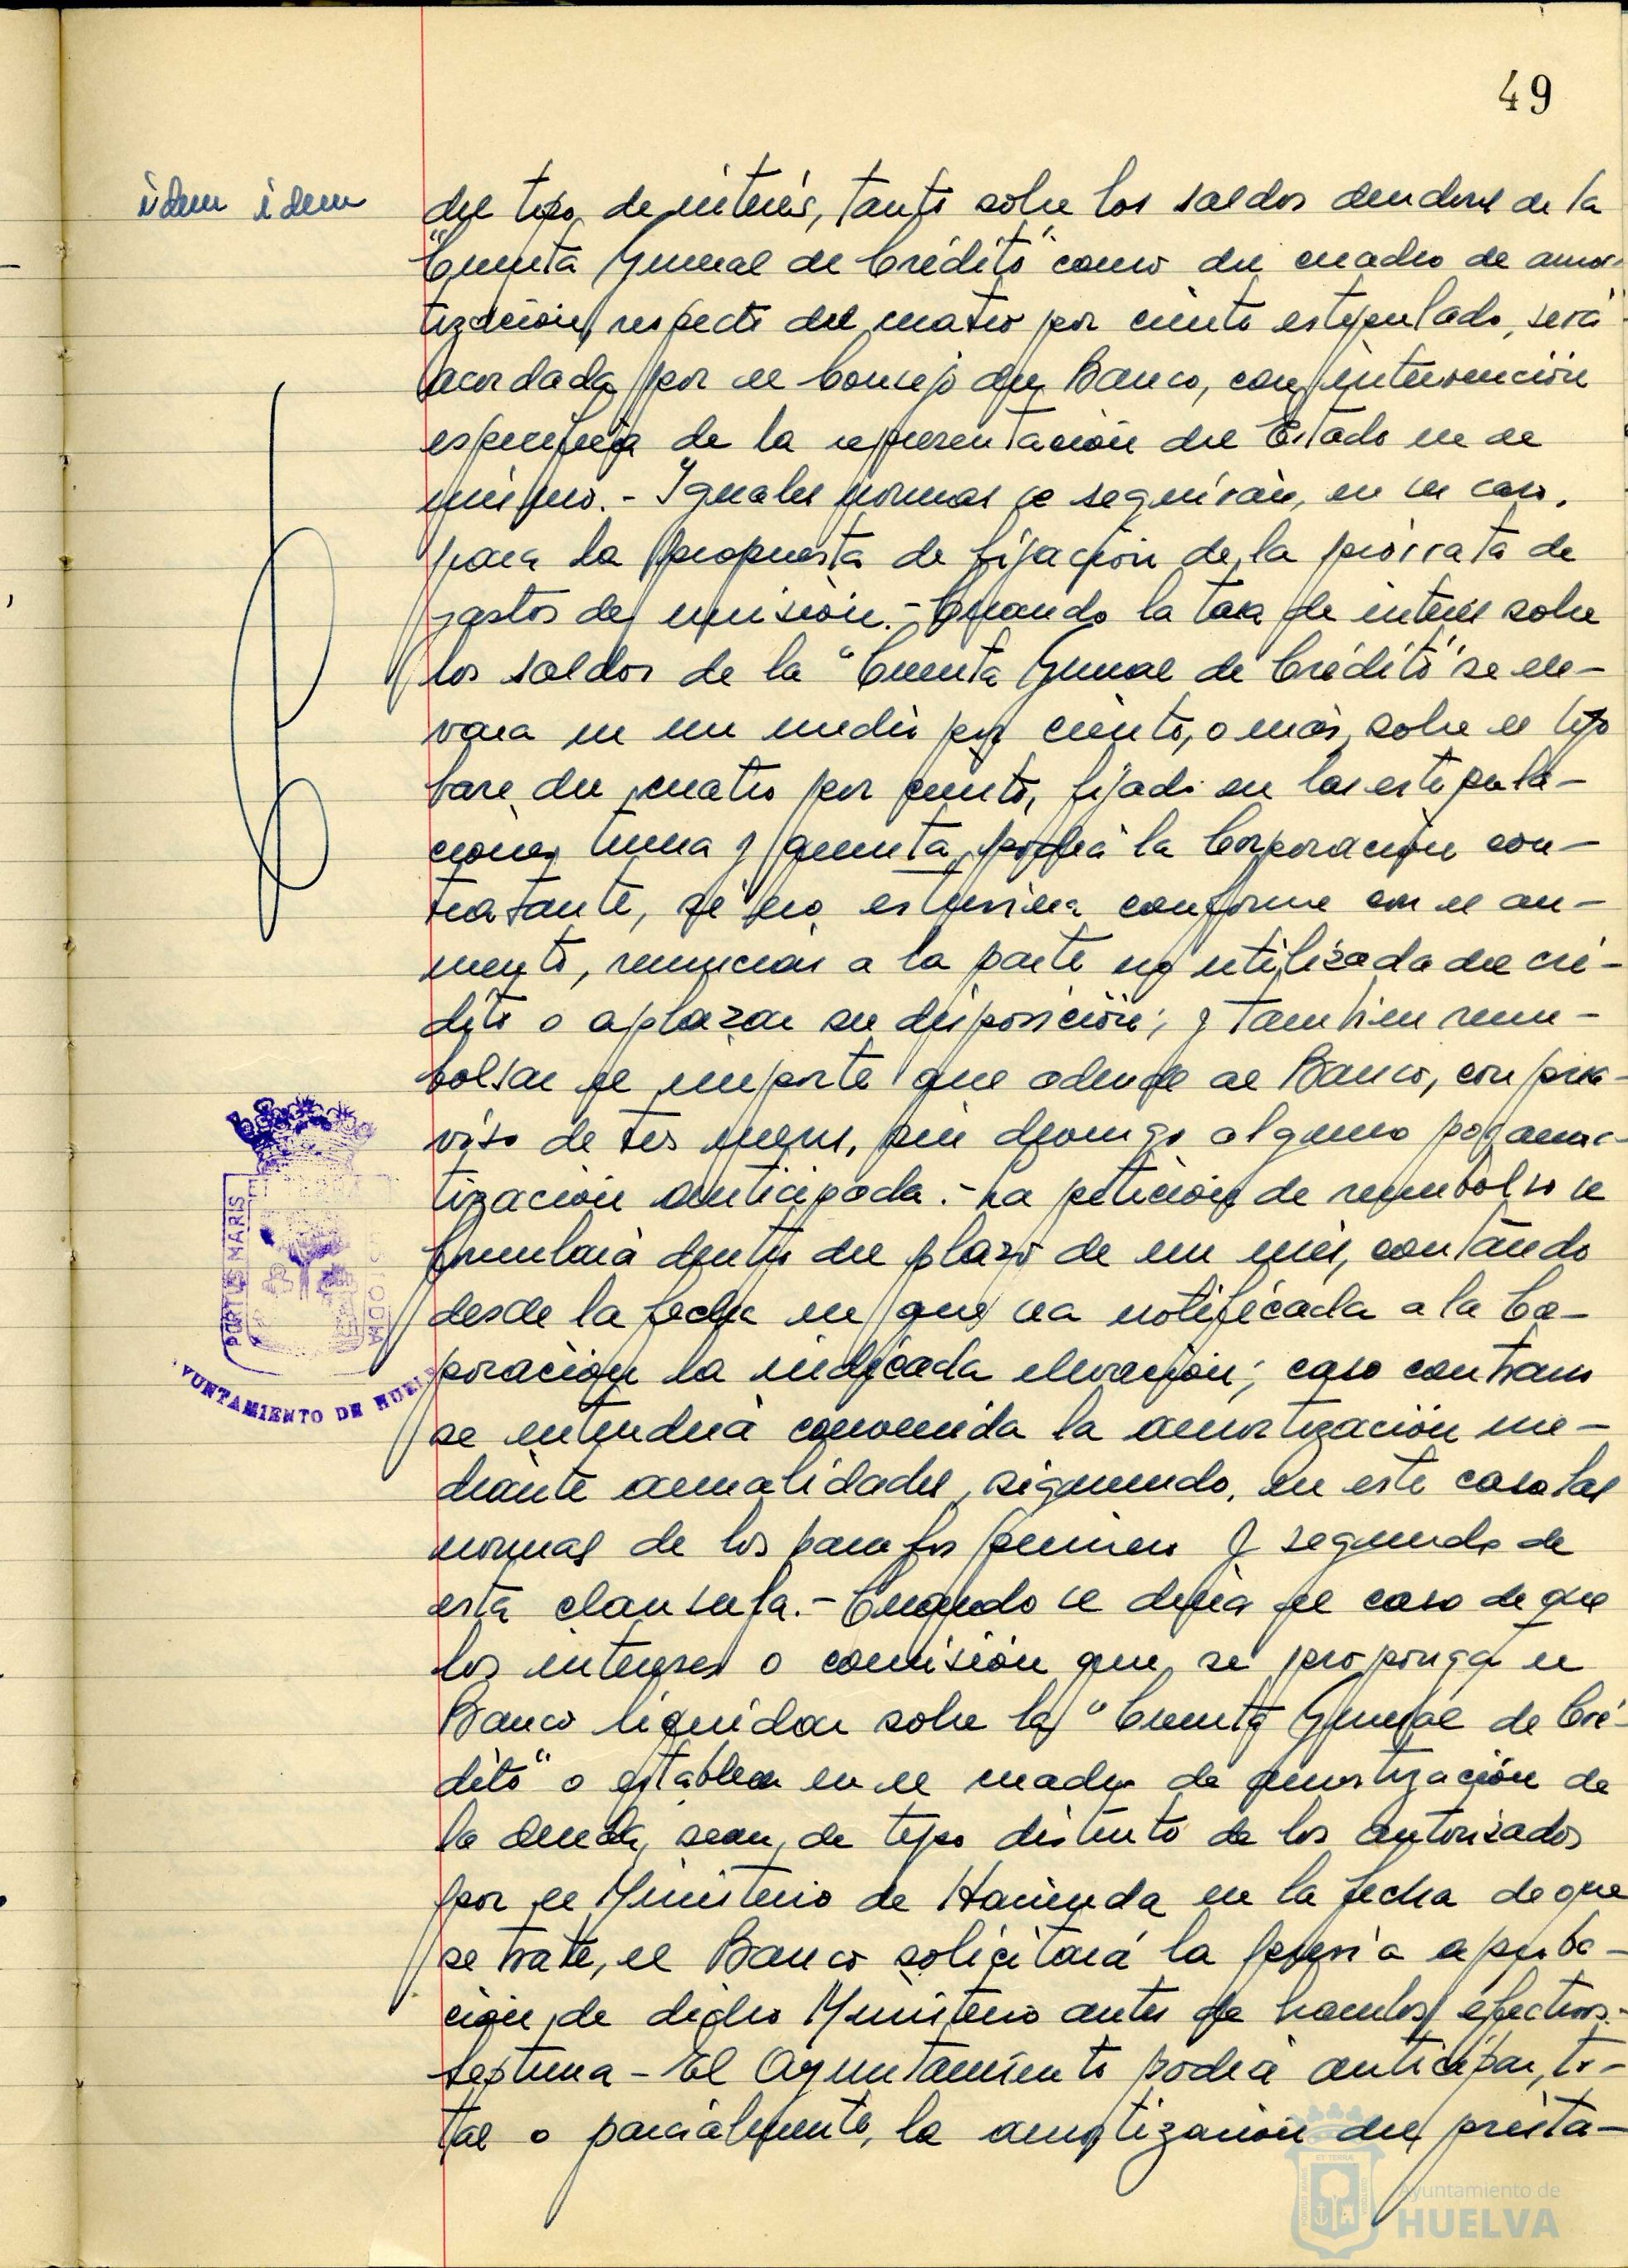 49
idem idem
del tipo de interés, tanto sobre los saldos deudores de la
"Cuenta General de Crédito" como del cuadro de amor-
tización, respecto del cuatro por ciento estipulado, será
acordada por el Consejo del Banco, con intervención
específica de la representación del Estado en el
mismo.- Iguales normas se seguirán, en su caso,
para la propuesta de fijación de la prorrata de
gastos de emisión.- Cuando la tasa de interés sobre
los saldos de la "Cuenta General de Crédito" se ele-
vara en un medio por ciento, o más, sobre el tipo
base del cuatro por ciento, fijado en las estipula-
ciones tercera y quinta, podrá la Corporación con-
tratante, si no estuviera conforme con el au-
mento, renunciar a la parte no utilizada del cré-
dito o aplazar su disposición; y también reem-
bolsar el importe que adeude al Banco, con prea-
viso de tres meses, sin devengo alguno por amor-
tización anticipada.- La petición de reembolso se
formulará dentro del plazo de un mes, contando
desde la fecha en que sea notificada a la Co-
poración la indicada elevación; caso contrario
se entenderá convenida la amortización me-
diante anualidades, siguiendo, en este caso las
normas de los párrafos primero y segundo de
esta clausula.- Cuando se diera el caso de que
los intereses o comisión que se proponga el
Banco liquidar sobre la "Cuenta General de Cré-
dito" o establecer en el cuadro de amortización de
la deuda, sean de tipo distinto de los autorizados
por el Ministerio de Hacienda en la fecha de que
se trate, el Banco solicitará la previa aproba-
ción de dicho Ministerio antes de hacerlos efectivos.-
Septima - El Ayuntamiento podrá anticipar, to-
tal o parcialmente, la amortización del présta-
PORTUS MARIS
AYUNTAMIENTO DE HUELVA
Ayuntamiento de
HUELVA